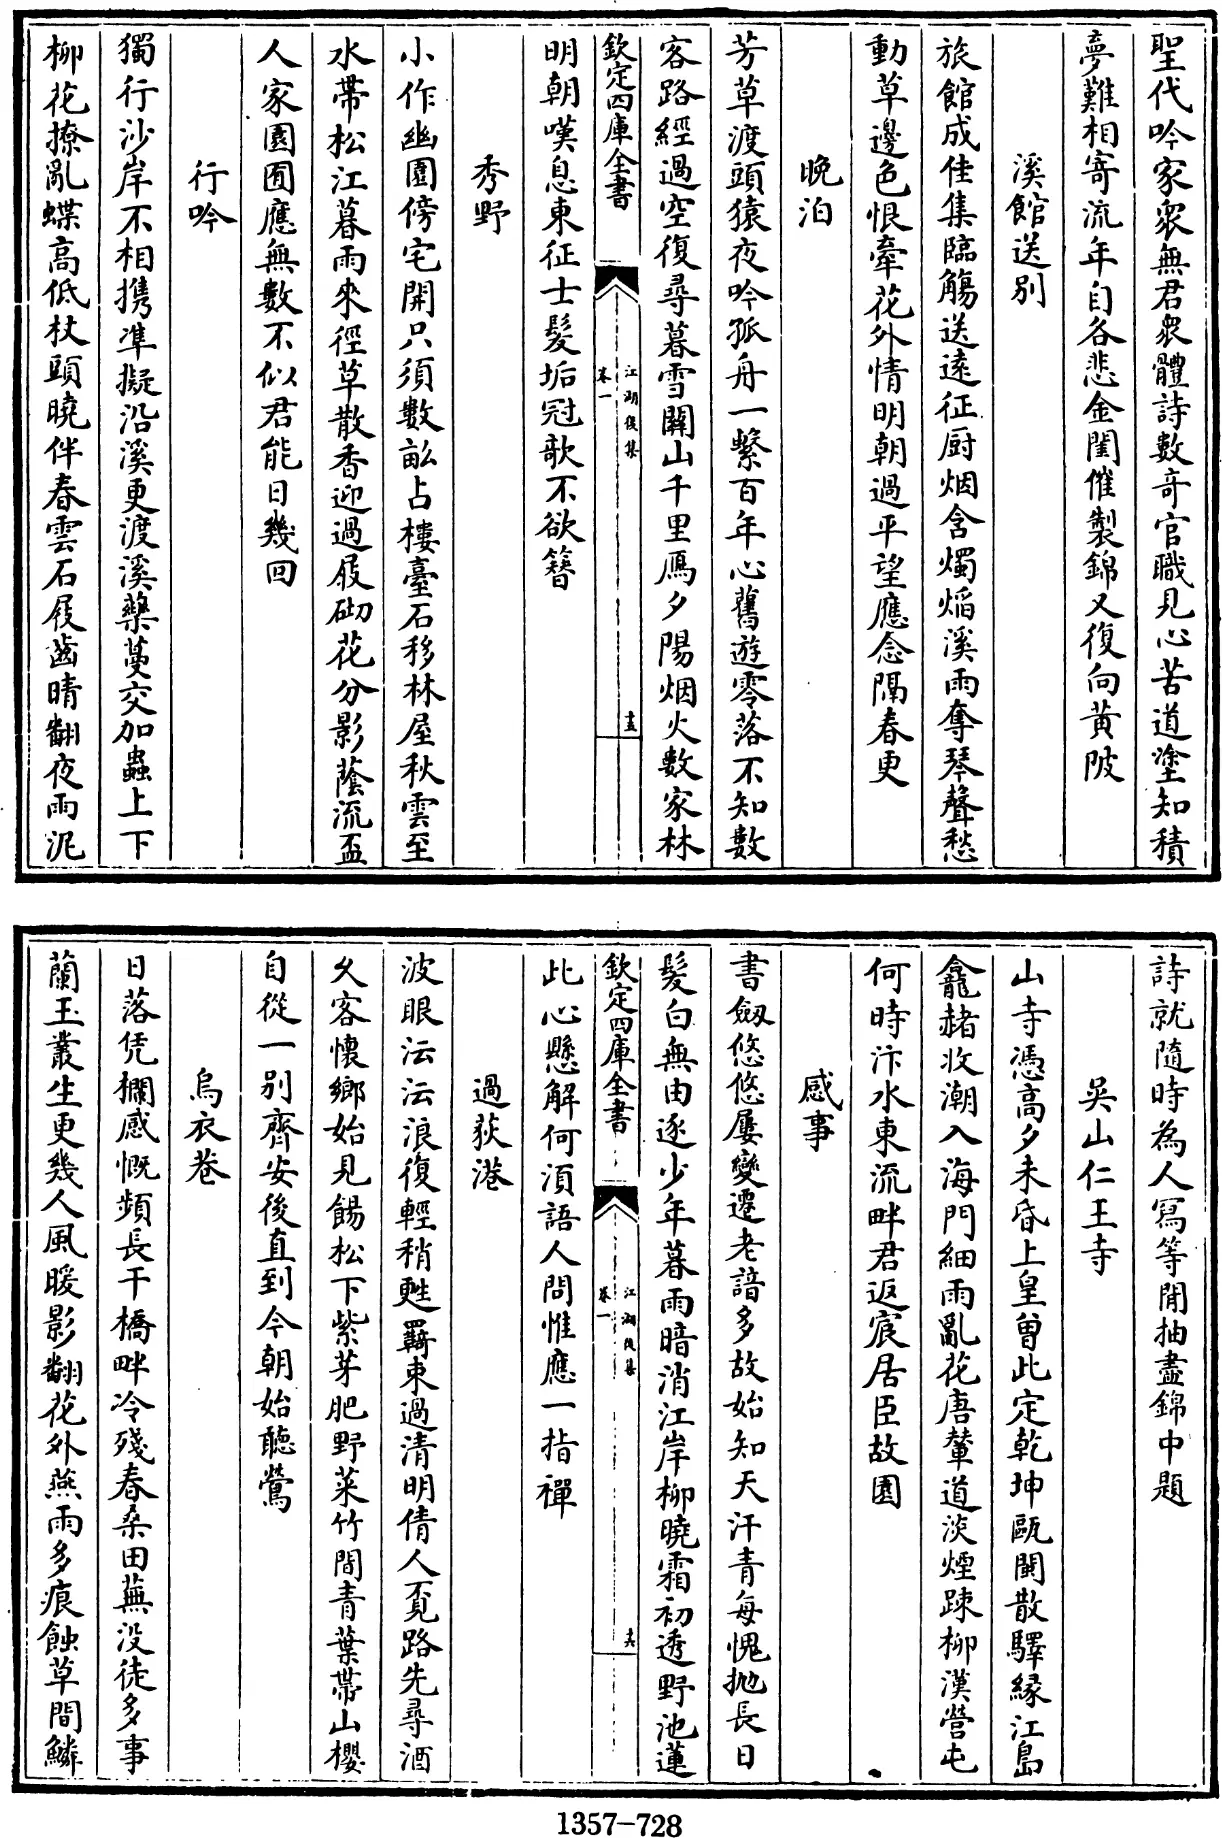 聖代吟家衆無君衆體詩數竒官職見心苦道塗知積
夢難相寄流年自各悲金閨催製錦又復向黄陂
溪館送别
旅館成佳集臨觴送遠征厨烟含燭熖溪雨奪琴聲愁
動草邊色恨牽花外情明朝過平望應念隔春更
晚泊
芳草渡頭猿夜吟孤舟一繫百年心舊遊零落不知數
客路經過空復尋暮雪關山千里鴈夕陽烟火數家林
欽定四庫全書
江湖後集
卷一
十五
明朝嘆息東征士髮垢冠欹不欲簪
秀野
小作幽園傍宅開只須數畝占樓臺石移林屋秋雲至
水帶松江暮雨來徑草散香迎過屐砌花分影蔭流盃
人家園囿應無數不似君能日幾回
行吟
獨行沙岸不相携凖擬沿溪更渡溪藥蔓交加蟲上下
柳花撩亂蝶高低杖頭曉伴春雲石屐齒晴翻夜雨泥
詩就隨時為人冩等閒抽盡錦中題
吳山仁王寺
山寺憑高夕未昏上皇曽此定乾坤甌閩散驛縁江島
龕赭收潮入海門細雨亂花唐輦道淡煙踈柳漢營屯
何時汴水東流畔君返宸居臣故園
感事
書劔悠悠屢變遷老諳多故始知天汗青每愧抛長日
髮白無由逐少年暮雨暗消江岸柳曉霜初透野池蓮
欽定四庫全書
江湖後集
卷一
十六
此心懸解何湏語人問惟應一指禪
過荻港
波眼沄沄浪復輕稍甦羇束過清明倩人覔路先尋酒
久客懷鄉始見餳松下紫芽肥野菜竹間青葉帶山櫻
自從一别齊安後直到今朝始聽鶯
烏衣巷
日落凭欄感慨頻長干橋畔冷殘春桑田蕪没徒多事
蘭玉叢生更幾人風暖影翻花外燕雨多痕蝕草間鱗
1357-728